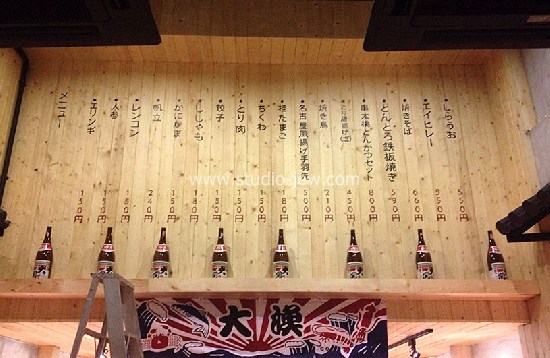 ・しらうお 550円
・エイヒレー 550円
・焼きそば 660円
・とんとろ鉄板焼き 590円
・串木揚とんかつセット 800円
・焼き鳥 210円
・名古屋風揚げ手羽先 500円
・焼たまご 180円
・ちくわ 150円
・とり肉 150円
・餃子 180円
・ししゃも 180円
・かにかま 150円
・帆立 240円
・レンコン 180円
・人参 150円
・エリンギ 150円
メニュー
www.studio-gow.com
大漁